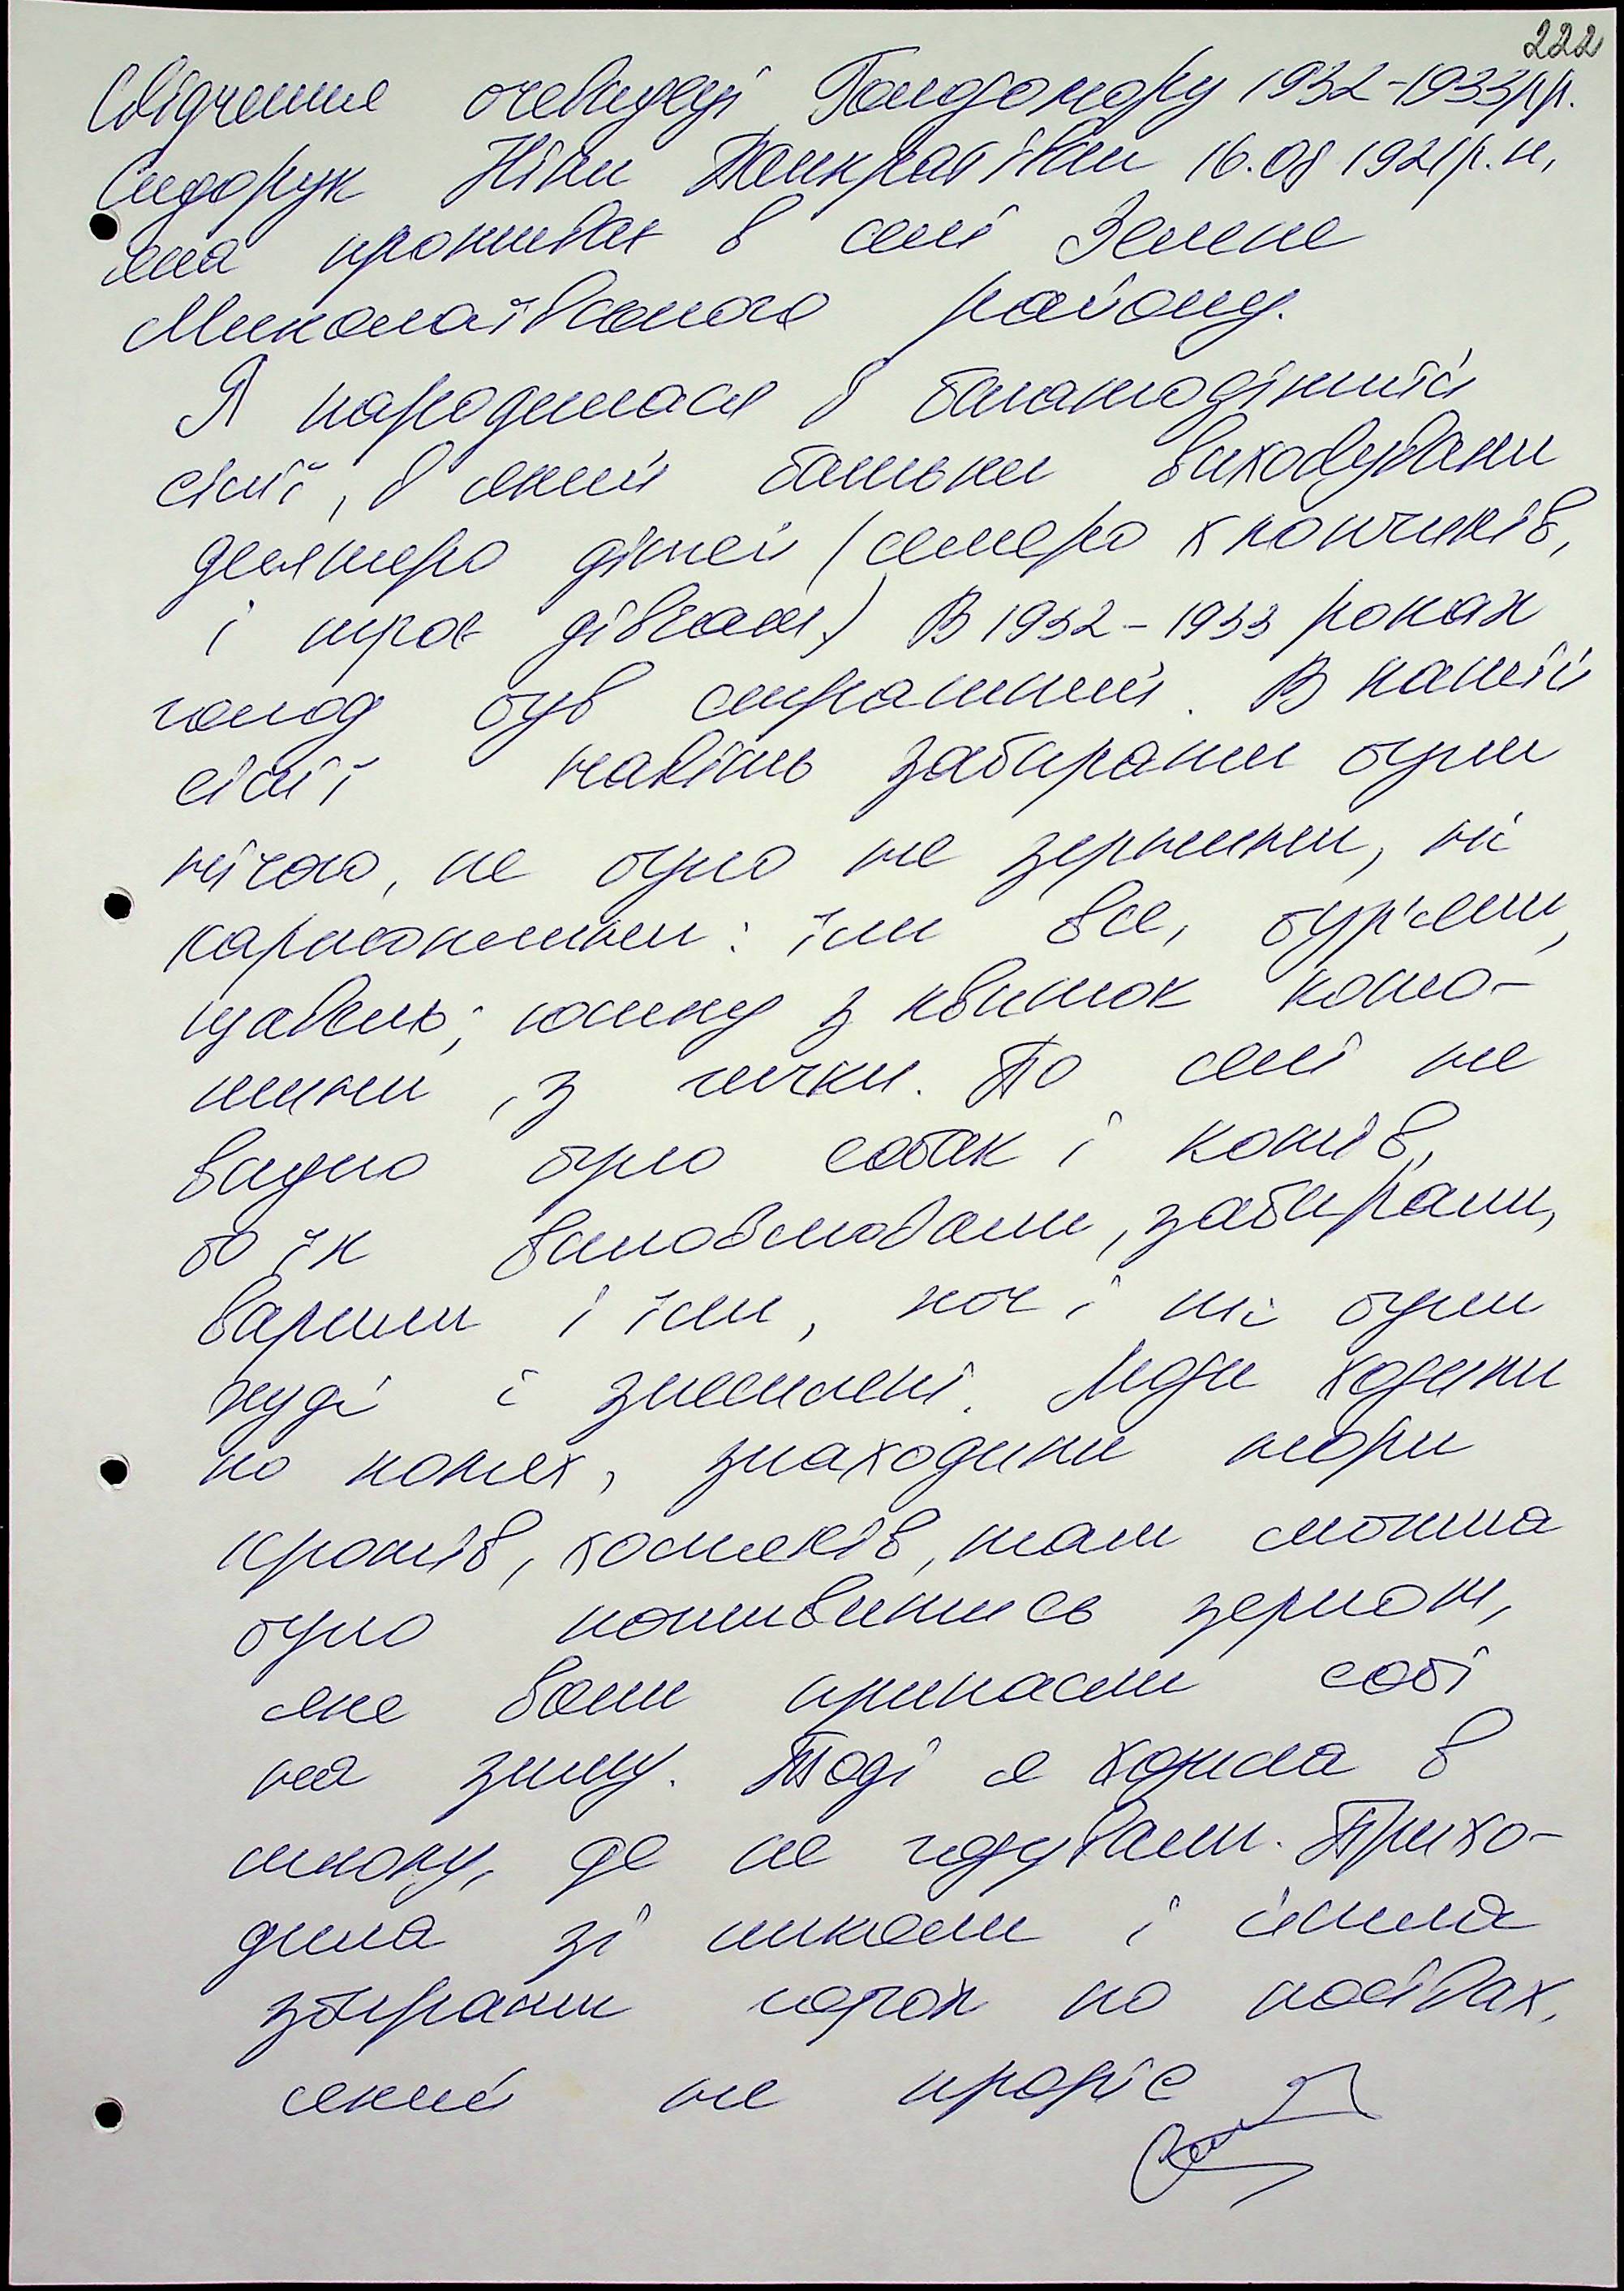 222
Свідчення очевидці Голодомору 1932-1933рр.
Сидорук Ніни Панкратівни 16.08 1921р.н,
яка проживає в селі Зелене
Миколаївського району.
Я народилася в багатодітній
сім'ї, в якій батьки виховували
десятеро дітей (семеро хлопчиків,
і троє дівчат) В 1932-1933 роках
голод був страшний. В нашій
сім'ї навіть забирати були
нічого, не було не зернини, ні
картоплини: їли все, бур'яни,
щавель; юшку з квіток коню-
шини, з гички. По селі не
видно було собак і котів,
бо їх виловлювали, забирали,
варили і їли, хоч і ті були
худі і знесилені. Люди ходили
по полях, знаходили нори
кротів, хом'яків, там можна
було поживитись зерном,
яке вони припасли собі
на зиму. Тоді я ходила в
школу, де не годували. Прихо-
дила зі школи і йшла
збирати горох по посівах,
який не проріс